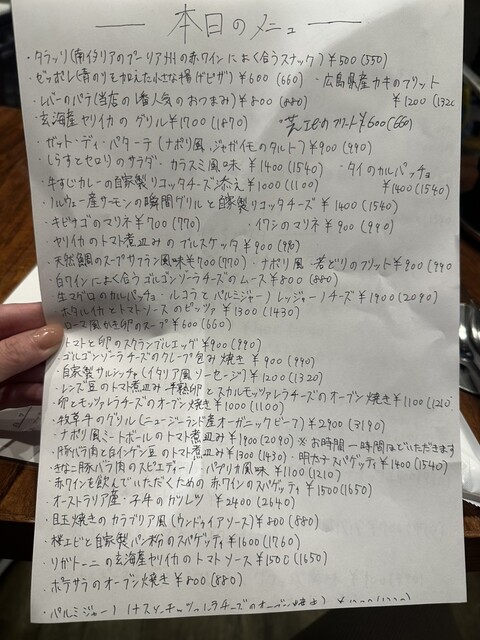 本日のメニュー
・タラッリ(南イタリアのプーリア州の赤ワインによく合うスナック)¥500(550)
・ゼッポレ(青のりを加えた小さな揚げピザ)¥600(660) ・広島県産カキのフリット
¥1200(1320
・レバーのパテ(当店の1番人気のおつまみ)¥800(880)
・玄海産ヤリイカのグリル¥1700(1870) ・芝エビのフリット¥600(660)
・ガット・ディ・パターテ(ナポリ風、ジャガイモのタルト)¥900(990)
・しらすとセロリのサラダ・カラスミ風味 ¥1400(1540) ・タイのカルパッチョ
¥1400(1540)
・牛すじカレーの自家製リコッタチーズ添え¥1000(1100)
・ノルウェー産サーモンの瞬間グリルと自家製リコッタチーズ ¥1400(1540)
・キビナゴのマリネ¥700(770) ・イワシのマリネ¥900(990)
・ヤリイカのトマト煮込みのブルスケッタ ¥900(990)
・天然鯛のスープサフラン風味¥700(770) ・ナポリ風・若どりのフリット¥900(990
・白ワインによく合うゴルゴンゾーラチーズのムース¥800(880)
・生マグロのカルパッチョ・ルコラとパルミジャーノレッジャーノチーズ¥1900(2090)
・ホタルイカとトマトソースのピッツァ ¥1300(1430)
・ローマ風かき卵のスープ¥600(660)
・トマトと卵のスクランブルエッグ¥900(990)
・ゴルゴンゾーラチーズのクレープ包み焼き ¥900(990)
・自家製サルシッチャ(イタリア風ソーセージ)¥1200(1320)
・レンズ豆のトマト煮込み・半熟卵とスカルモッツァレラチーズのオーブン焼き¥1100(1210)
・卵とモッツァレラチーズのオーブン焼き¥1000(1100)
・牧草牛のグリル(ニュージーランド産オーガニックビーフ)¥2900(3190)
・ナポリ風ミートボールのトマト煮込み¥1900(2090)※お時間一時間ほどいただきます
・豚バラ肉と白インゲン豆のトマト煮込み¥1300(1430)・明カナスパゲッティ¥1400(1540)
・きなこ豚バラ肉のスピエディーノ パプリカ風味 ¥1100(1210)
・赤ワインを飲んでいただくための赤ワインのスパゲッティ¥1500(1650)
・オーストラリア産・子牛のカツレツ ¥2400(2640)
・目玉焼きのカラブリア風(ウンドゥイアソース)¥800(880)
・桜エビと自家製パン粉のスパゲッティ¥1600(1760)
・リガトーニの玄海産ヤリイカのトマトソース¥1500(1650)
・ポテサラのオーブン焼き¥800(880)
・パルミジャーノ